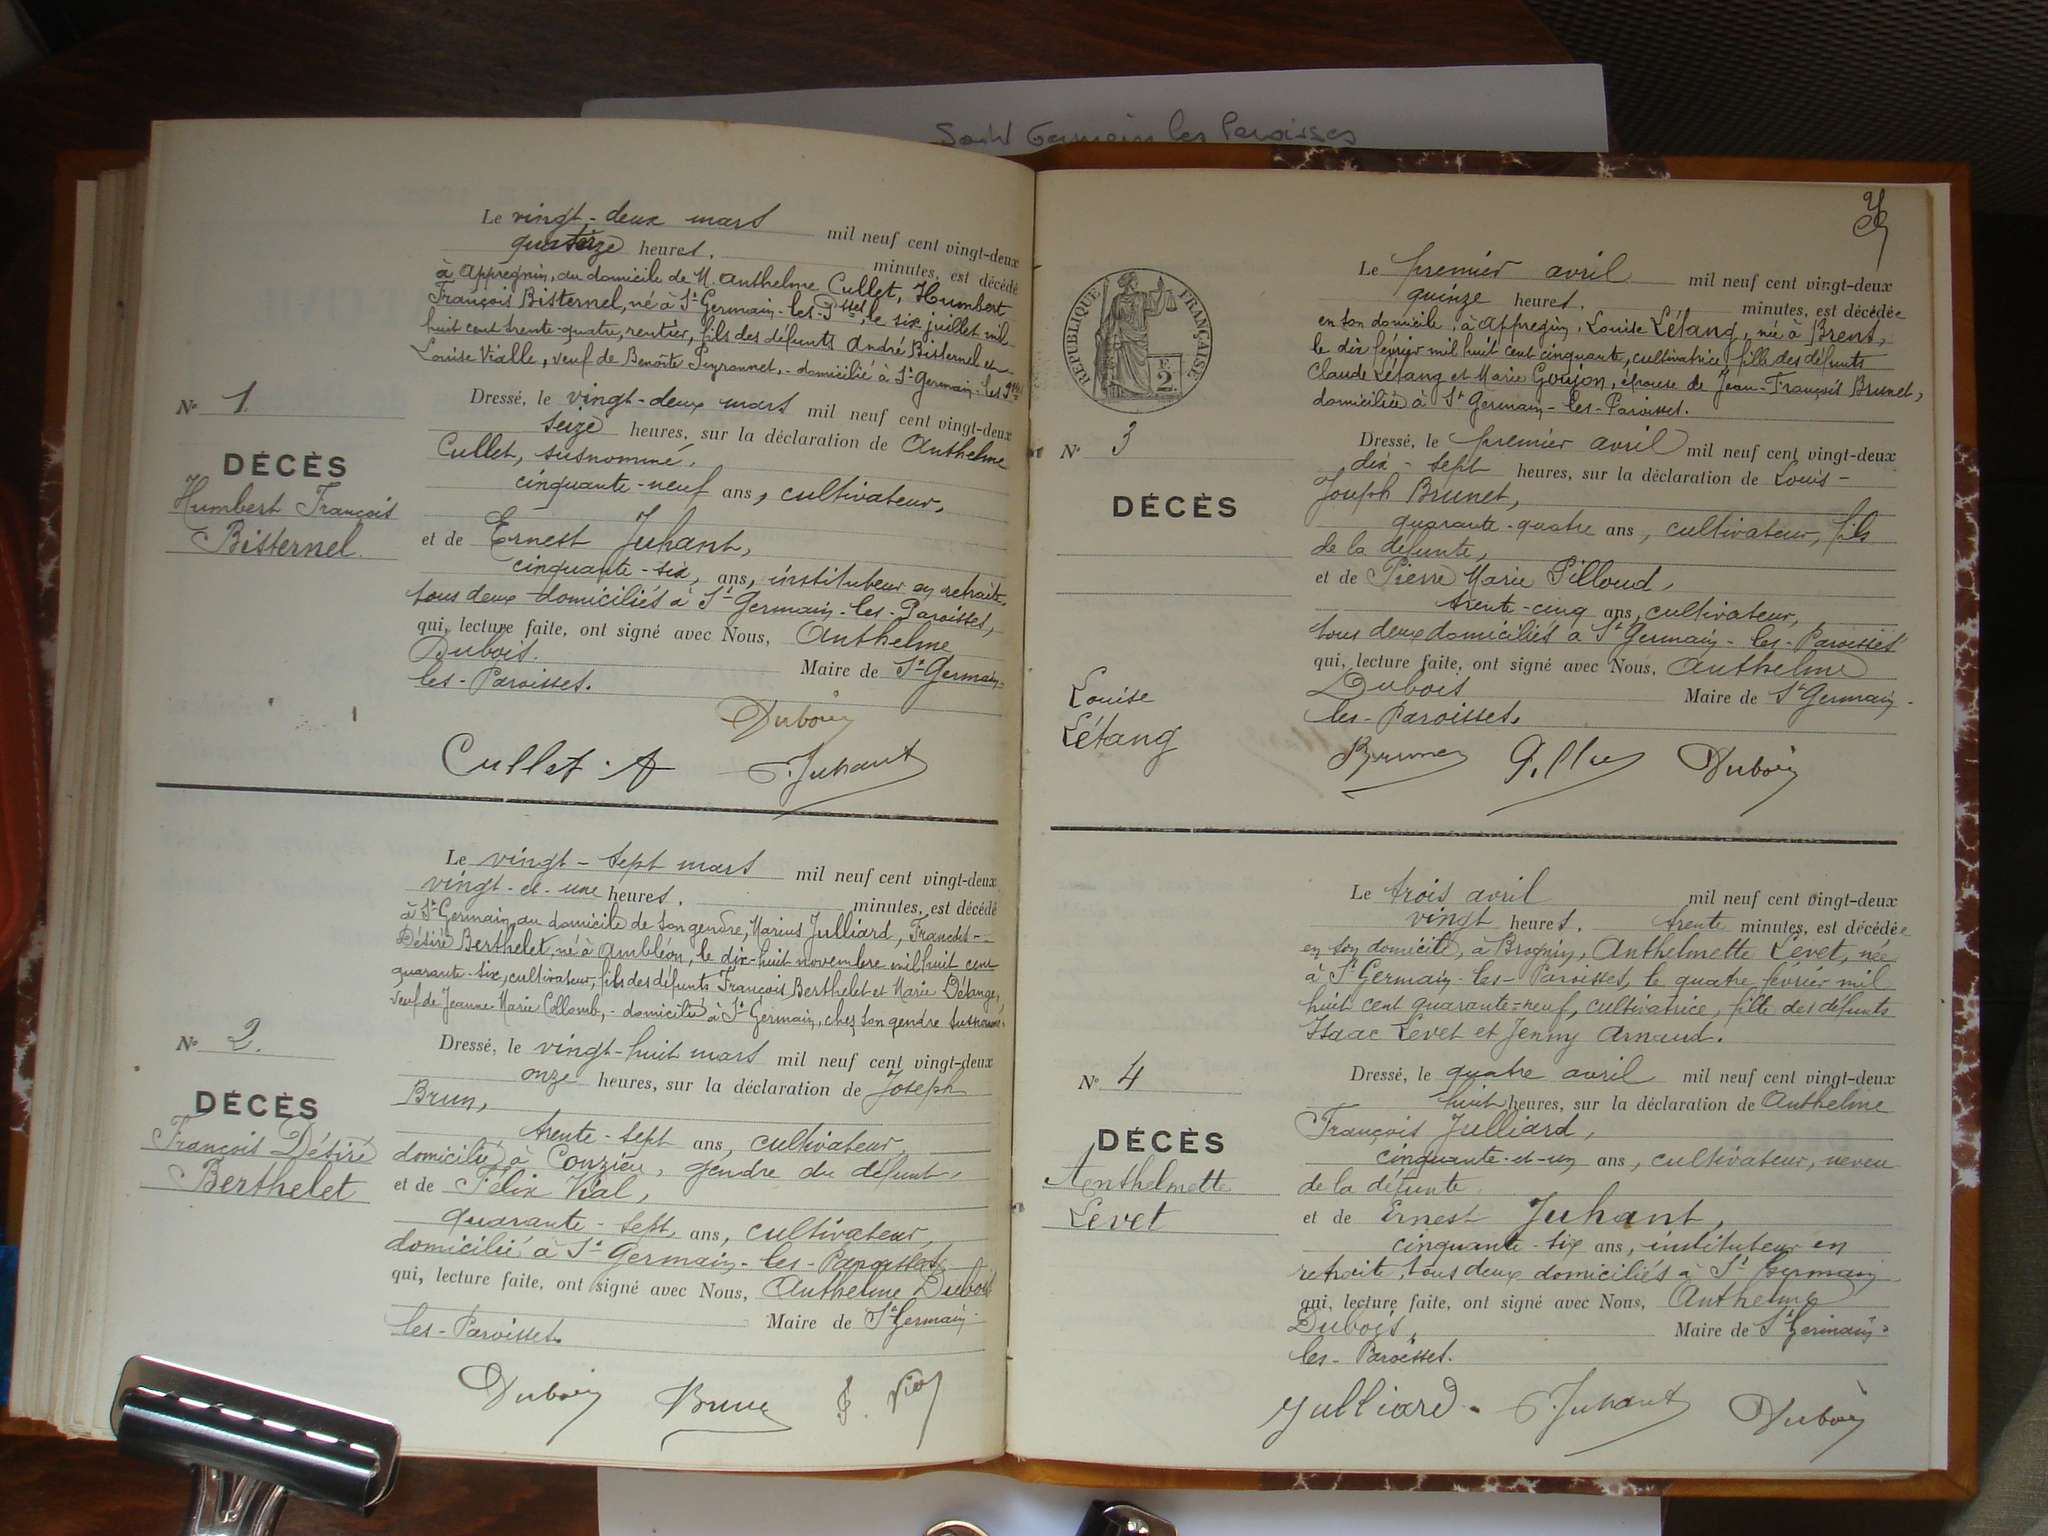 Saint Germain les Paroisses
Le vingt-deux mars mil neuf cent vingt-deux
quatorze heures. minutes, est décédé
à Appregnin, au domicile de M. Anthelme Cullet, Humbert
François Bisternel, né à St Germain-les-Psses, le six juillet mil
huit cent trente-quatre, rentier, fils des défunts André Bisternel et
Louise Vialle, veuf de Benoîte Peyronnet, - domicilié à St Germain-les-Psses
N° 1.
DÉCÈS
Humbert François
Bisternel.
Dressé, le vingt-deux mars mil neuf cent vingt-deux
seize heures, sur la déclaration de Anthelme
Cullet, susnommé,
cinquante-neuf ans, cultivateur,
et de Ernest Juhant,
cinquante-six, ans, instituteur en retraite,
tous deux domiciliés à St Germain-les-Paroisses,
qui, lecture faite, ont signé avec Nous, Anthelme
Dubois. Maire de St Germain-
les-Paroisses.
Dubois
Cullet. A Juhant
Le vingt-sept mars mil neuf cent vingt-deux
vingt-et-une heures. minutes, est décédé
à St Germain, au domicile de son gendre, Marius Julliard, François-
Désiré Berthelet, né à Ambléon, le dix-huit novembre mil huit cent
quarante-six, cultivateur, fils des défunts François Berthelet et Marie Délange,
veuf de Jeanne Marie Collomb, - domicilié à St Germain, chez son gendre susnommé.
N° 2.
DÉCÈS
François Désiré
Berthelet
Dressé, le vingt-huit mars mil neuf cent vingt-deux
onze heures, sur la déclaration de Joseph
Brun,
trente-sept ans, cultivateur,
domicilié à Conzieu, gendre du défunt,
et de Félix Vial,
quarante-sept, ans, cultivateur,
domicilié à St Germain-les-Paroisses,
qui, lecture faite, ont signé avec Nous, Anthelme Dubois
Maire de St Germain-
les-Paroisses.
Dubois Brun
RÉPUBLIQUE FRANÇAISE
2 F.
Le premier avril mil neuf cent vingt-deux
quinze heures. minutes, est décédée
en son domicile, à Appregin, Louise Létang, née à Brens,
le dix février mil huit cent cinquante, cultivatrice, fille des défunts
Claude Létang et Marie Goujon, épouse de Jean-François Brunet,
domiciliée à St Germain-les-Paroisses.
N° 3
DÉCÈS
Louise
Létang
Dressé, le premier avril mil neuf cent vingt-deux
dix-sept heures, sur la déclaration de Louis-
Joseph Brunet,
quarante-quatre ans, cultivateur, fils
de la défunte,
et de Pierre Marie Pilloud,
trente-cinq ans, cultivateur,
tous deux domiciliés à St Germain-les-Paroisses
qui, lecture faite, ont signé avec Nous, Anthelme
Dubois Maire de St Germain-
les-Paroisses.
Brunet Dubois
Le trois avril mil neuf cent vingt-deux
vingt heures. trente minutes, est décédée
en son domicile, à Brognin, Anthelmette Levet, née
à St Germain-les-Paroisses, le quatre février mil
huit cent quarante=neuf, cultivatrice, fille des défunts
Isaac Levet et Jenny Arnaud.
N° 4
DÉCÈS
Anthelmette
Levet
Dressé, le quatre avril mil neuf cent vingt-deux
huit heures, sur la déclaration de Anthelme
François Julliard,
cinquante-et-un ans, cultivateur, neveu
de la défunte
et de Ernest Juhant,
cinquante-six ans, instituteur en
retraite, tous deux domiciliés à St Germain
qui, lecture faite, ont signé avec Nous, Anthelme
Dubois, Maire de St Germain-
les-Paroisses.
Julliard. Juhant Dubois